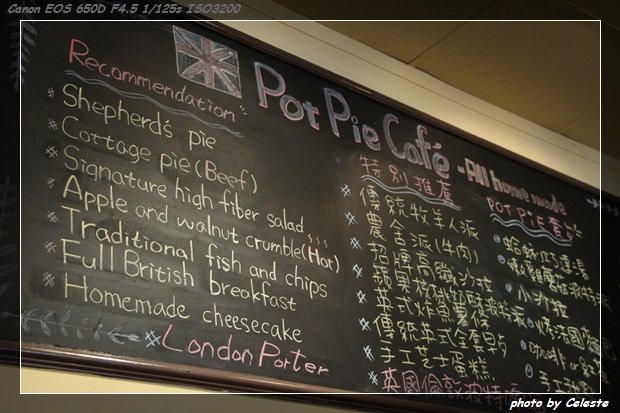 Canon EOS 650D F4.5 1/125s ISO3200
Pot Pie Café - All home made
Recommendation
Shepherd's pie
Cottage pie (Beef)
Signature high fiber salad
Apple and walnut crumble (Hot)
Traditional fish and chips
Full British breakfast
Homemade cheesecake
London Porter
特別推薦
傳統牧羊人派
農舍派(牛肉)
招牌高纖沙拉
英式炸魚薯條
傳統英式全套早
手工芝士蛋糕
POT PIE套
小沙拉
photo by Celeste